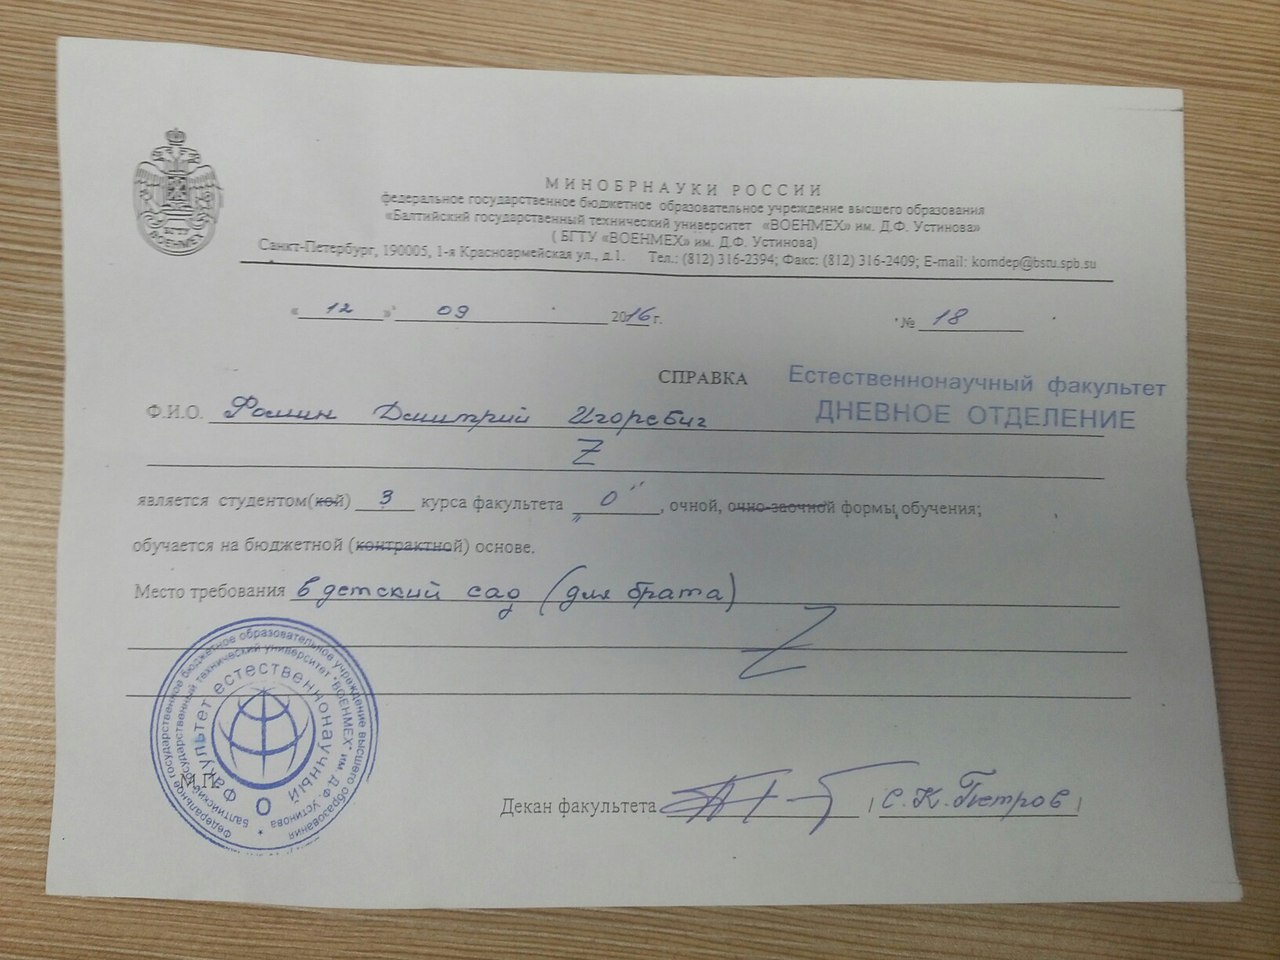 МИНОБРНАУКИ РОССИИ
федеральное государственное бюджетное образовательное учреждение высшего образования
«Балтийский государственный технический университет «ВОЕНМЕХ» им. Д.Ф. Устинова»
( БГТУ «ВОЕНМЕХ» им. Д.Ф. Устинова)
Санкт-Петербург, 190005, 1-я Красноармейская ул., д.1. Тел.: (812) 316-2394; Факс: (812) 316-2409; E-mail: komdep@bstu.spb.su
БГТУ
ВОЕНМЕХ
« 12 » 09 2016 г. № 18
СПРАВКА
Естественнонаучный факультет
ДНЕВНОЕ ОТДЕЛЕНИЕ
Ф.И.О. Фомин Дмитрий Игоревич
Z
является студентом(кой) 3 курса факультета „О", очной, очно-заочной формы обучения;
обучается на бюджетной (контрактной) основе.
Место требования в детский сад (для брата)
Z
Федеральное государственное бюджетное образовательное учреждение высшего образования
Балтийский государственный технический университет "ВОЕНМЕХ" им. Д.Ф. Устинова
факультет естественнонаучный
О
М.П.
Декан факультета / С.К. Петров /